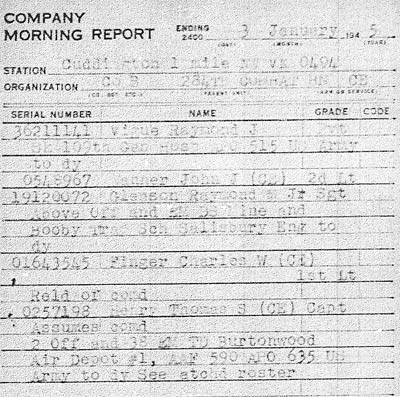 COMPANY
MORNING REPORT
ENDING 2400 3 January 194 5
(DAY) (MONTH) (YEAR)
STATION Cuddington 1 mile VK 0494
ORGANIZATION Co B 284TH COMBAT BN CE
(PARENT UNIT) (ARM OR SERVICE)
SERIAL NUMBER NAME GRADE CODE
36211141 Raymond J Pvt
109th Gen Hosp APO 515 US Army
to dy
0546967 John J (CE) 2d Lt
19120072 Raymond Jr Sgt
Above Off and EM DS Mine and
Booby Trap Sch Salisbury Eng to
dy
01643545 Finger Charles W (CE)
1st Lt
Reld of comd
0257198 Thomas S (CE) Capt
Assumes comd
2 Off and 38 EM TD Burtonwood
Air Depot #1, AAF 590 APO 635 US
Army to dy See atchd roster